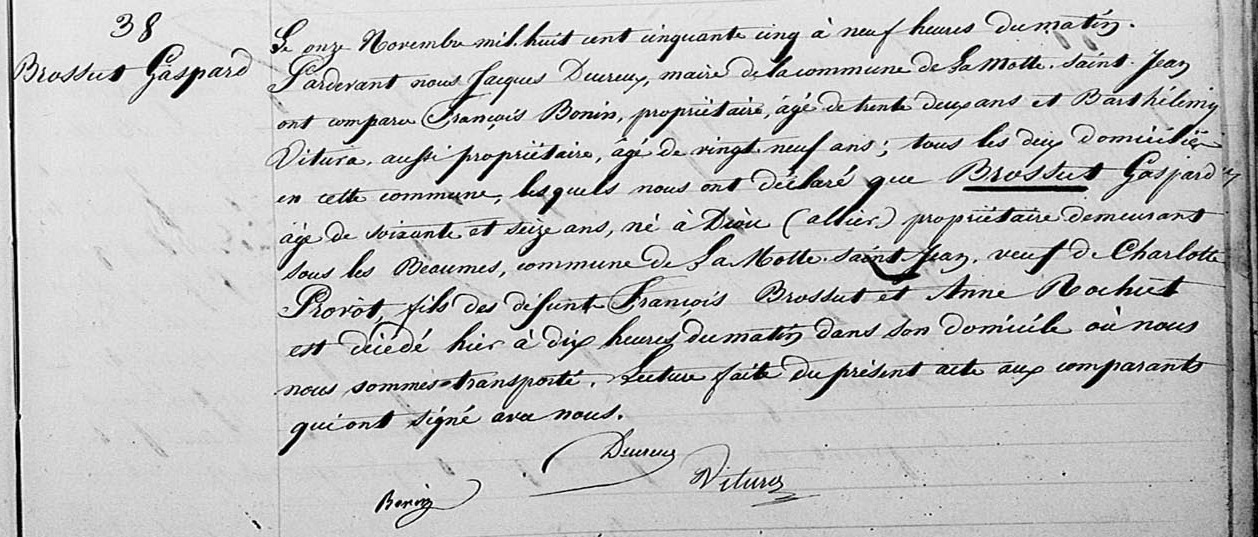 38
Brossut Gaspard
Le onze Novembre mil huit cent cinquante cinq à neuf heures du matin.
Pardevant nous Jacques Ducreux, maire de la commune de La Motte-Saint-Jean
ont comparu François Bonin, propriétaire, âgé de trente deux ans et Barthélemy
Viturea, aussi propriétaire, âgé de vingt neuf ans; tous les deux domiciliés
en cette commune, lesquels nous ont déclaré que Brossut Gaspard
âgé de soixante et seize ans, né à Diou (allier) propriétaire demeurant
sous les Beaumes, commune de La Motte-saint-Jean, veuf de Charlotte
Provôt, fils des defunts François Brossut et Anne Rochut
est décédé hier à dix heures du matin dans son domicile où nous
nous sommes transporté. Lecture faite du présent acte aux comparants
qui ont signé avec nous.
Ducreux
Bonin